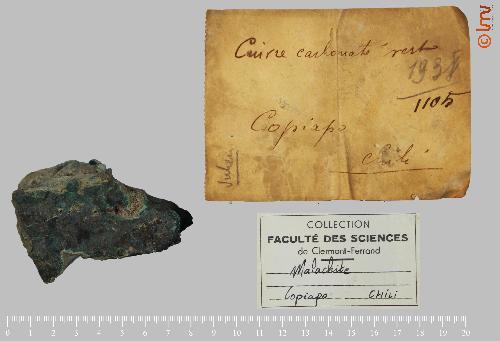 Cuivre carbonaté vert
1938
1105
Copiapo
Chili
COLLECTION
FACULTÉ DES SCIENCES
de Clermont-Ferrand
Malachite
Copiapo CHILI
© lmv
0 1 2 3 4 5 6 7 8 9 10 11 12 13 14 15 16 17 18 19 20